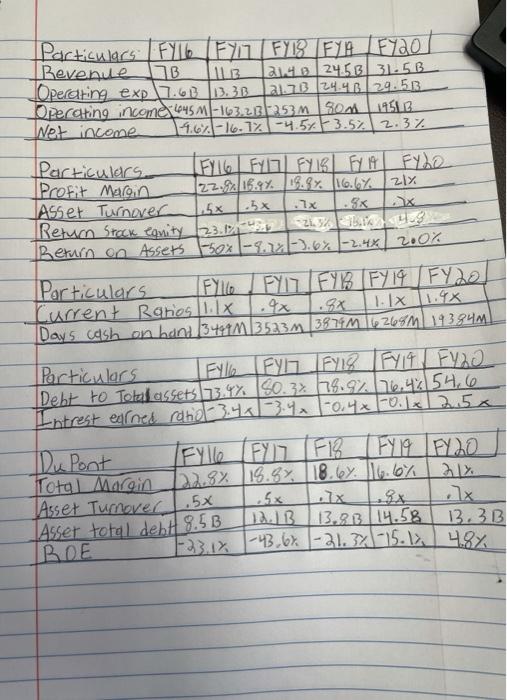 Particulars FY16 FY17 FY18 FY19 FY20
Revenue 7B 11B 21.4B 24.5B 31.5B
Operating exp 7.6B 13.3B 21.7B 24.4B 29.5B
Operating income -645M -163.2B -253M 80M 1951B
Net income -9.6% -16.7% -4.5% -3.5% 2.3%
Particulars FY16 FY17 FY18 FY19 FY20
Profit Margin 22.8% 18.9% 18.8% 16.6% 21%
Asset Turnover .5x .5x .7x .8x .7x
Return Stock equity 23.1%
Return on Assets -50x -8.7% -3.6% -2.4x 2.0%
Particulars FY16 FY17 FY18 FY19 FY20
Current Ratios 1.1x .9x .8x 1.1x 1.9x
Days cash on hand 3499M 3523M 3879M 6268M 19384M
Particulars FY16 FY17 FY18 FY19 FY20
Debt to Total assets 73.4% 80.3% 78.9% 76.4% 54.6
Intrest earned ratio -3.4x -3.4x -0.4x -0.1x 2.5x
Du Pont FY16 FY17 F18 FY19 FY20
Total Margin 22.8% 18.8% 18.6% 16.6% 21%
Asset Turnover .5x .5x .7x .8x .7x
Asset total debt 8.5B 12.1B 13.8B 14.5B 13.3B
ROE -23.1% -43.6% -21.3% -15.1% 4.8%